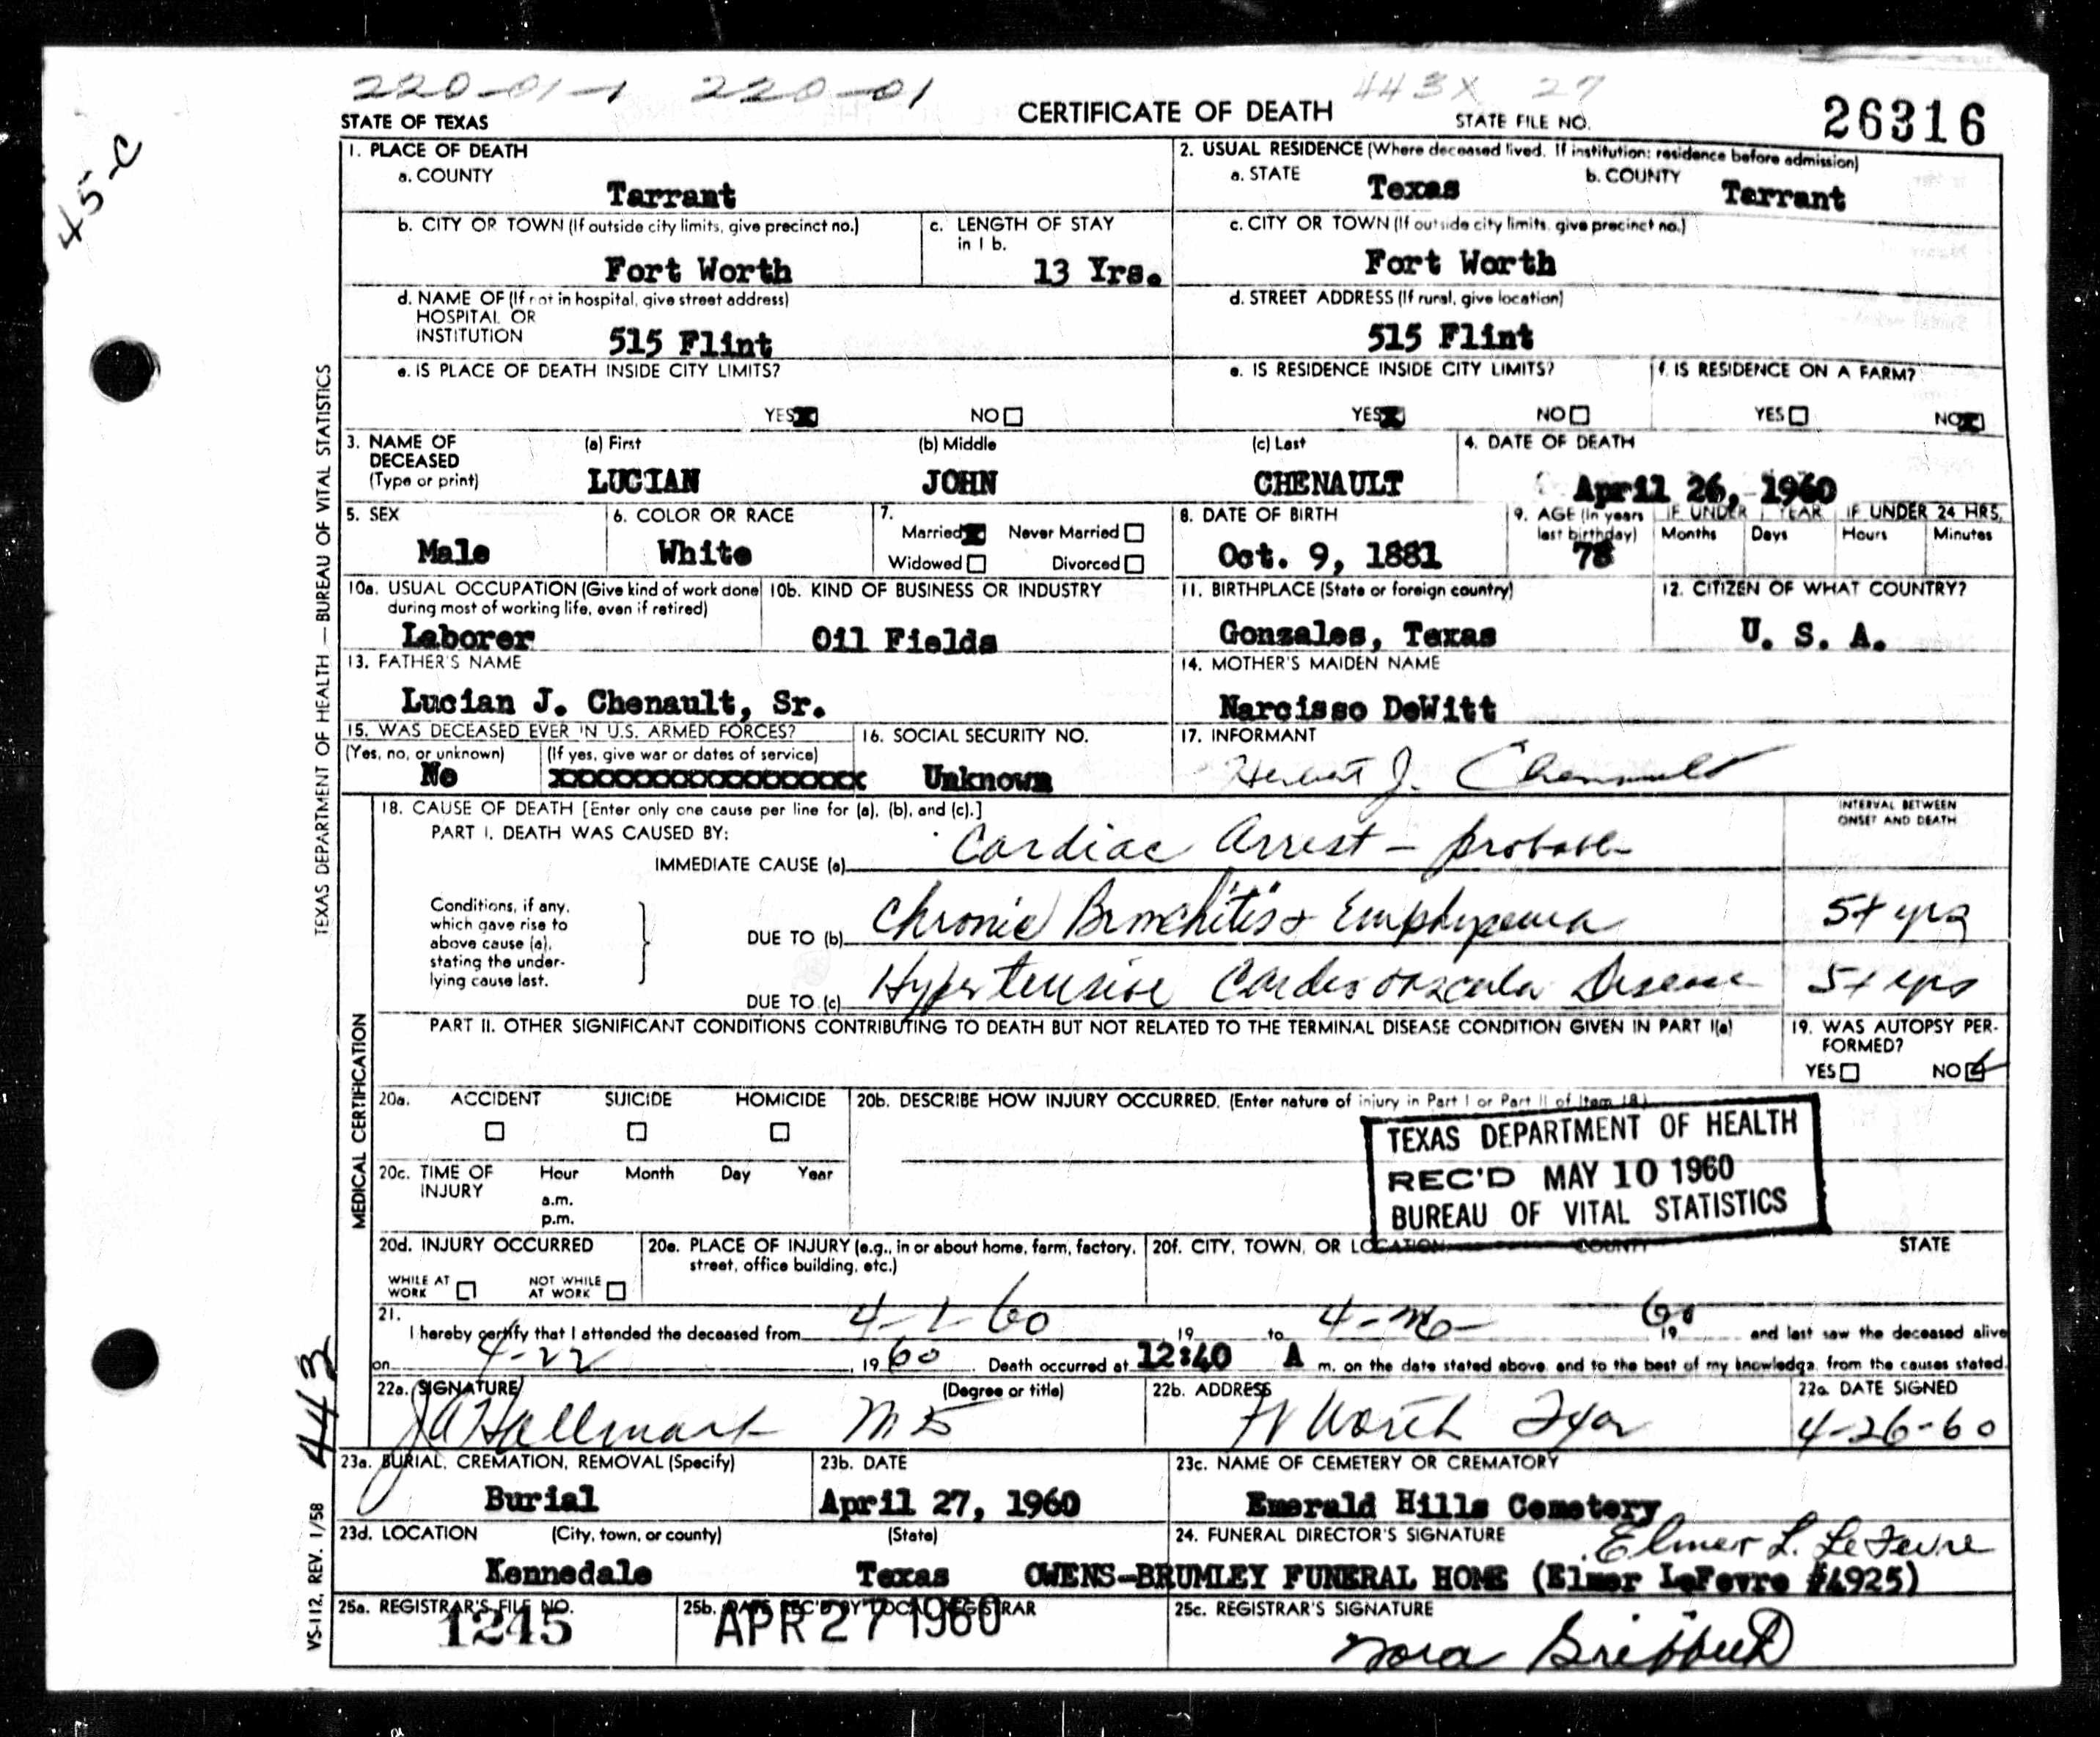 220-01-1 220-01 443X 27
45-C
STATE OF TEXAS CERTIFICATE OF DEATH STATE FILE NO. 26316
1. PLACE OF DEATH
a. COUNTY
Tarrant
2. USUAL RESIDENCE (Where deceased lived. If institution: residence before admission)
a. STATE Texas b. COUNTY Tarrant
b. CITY OR TOWN (If outside city limits, give precinct no.)
Fort Worth
c. LENGTH OF STAY in 1 b.
13 Yrs.
c. CITY OR TOWN (If outside city limits, give precinct no.)
Fort Worth
d. NAME OF (If not in hospital, give street address)
HOSPITAL OR
INSTITUTION 515 Flint
d. STREET ADDRESS (If rural, give location)
515 Flint
e. IS PLACE OF DEATH INSIDE CITY LIMITS?
YES NO
e. IS RESIDENCE INSIDE CITY LIMITS?
YES NO
f. IS RESIDENCE ON A FARM?
YES NO
3. NAME OF DECEASED (Type or print)
(a) First (b) Middle (c) Last
LUCIAN JOHN CHENAULT
4. DATE OF DEATH
April 26, 1960
5. SEX
Male
6. COLOR OR RACE
White
7.
Married Never Married
Widowed Divorced
8. DATE OF BIRTH
Oct. 9, 1881
9. AGE (In years last birthday)
78
IF UNDER 1 YEAR
Months Days
IF UNDER 24 HRS.
Hours Minutes
10a. USUAL OCCUPATION (Give kind of work done during most of working life, even if retired)
Laborer
10b. KIND OF BUSINESS OR INDUSTRY
Oil Fields
11. BIRTHPLACE (State or foreign country)
Gonzales, Texas
12. CITIZEN OF WHAT COUNTRY?
U. S. A.
13. FATHER'S NAME
Lucian J. Chenault, Sr.
14. MOTHER'S MAIDEN NAME
Narcisso DeWitt
15. WAS DECEASED EVER IN U.S. ARMED FORCES?
(Yes, no, or unknown) (If yes, give war or dates of service)
No xxxxxxxxxxxxxxxxxxx
16. SOCIAL SECURITY NO.
Unknown
17. INFORMANT
Herbert J. Chenault
18. CAUSE OF DEATH [Enter only one cause per line for (a), (b), and (c).]
INTERVAL BETWEEN ONSET AND DEATH
PART I. DEATH WAS CAUSED BY:
IMMEDIATE CAUSE (a) Cardiac Arrest - probable
Conditions, if any,
which gave rise to
above cause (a),
stating the under-
lying cause last.
DUE TO (b) Chronic Bronchitis & Emphysema 5+ yrs
DUE TO (c) Hypertensive Cardiovascular Disease 5+ yrs
PART II. OTHER SIGNIFICANT CONDITIONS CONTRIBUTING TO DEATH BUT NOT RELATED TO THE TERMINAL DISEASE CONDITION GIVEN IN PART I(a)
19. WAS AUTOPSY PER-
FORMED?
YES NO
20a. ACCIDENT SUICIDE HOMICIDE
20b. DESCRIBE HOW INJURY OCCURRED. (Enter nature of injury in Part I or Part II of Item 18)
TEXAS DEPARTMENT OF HEALTH
REC'D MAY 10 1960
BUREAU OF VITAL STATISTICS
20c. TIME OF INJURY
Hour Month Day Year
a.m.
p.m.
20d. INJURY OCCURRED
WHILE AT WORK NOT WHILE AT WORK
20e. PLACE OF INJURY (e.g., in or about home, farm, factory, street, office building, etc.)
20f. CITY, TOWN, OR LOCATION COUNTY STATE
21.
I hereby certify that I attended the deceased from 4-1-60 19 to 4-26- 1960 and last saw the deceased alive
on 4-22, 1960. Death occurred at 12:40 A m. on the date stated above, and to the best of my knowledge, from the causes stated.
22a. SIGNATURE (Degree or title)
JA Hallmark MD
22b. ADDRESS
Ft Worth Tex
22c. DATE SIGNED
4-26-60
23a. BURIAL, CREMATION, REMOVAL (Specify)
Burial
23b. DATE
April 27, 1960
23c. NAME OF CEMETERY OR CREMATORY
Emerald Hills Cemetery
23d. LOCATION (City, town, or county) (State)
Kennedale Texas
24. FUNERAL DIRECTOR'S SIGNATURE
Elmer L. LeFevre
OWENS-BRUMLEY FUNERAL HOME (Elmer LeFevre #4925)
25a. REGISTRAR'S FILE NO.
1245
25b. DATE REC'D BY LOCAL REGISTRAR
APR 27 1960
25c. REGISTRAR'S SIGNATURE
Nora
TEXAS DEPARTMENT OF HEALTH — BUREAU OF VITAL STATISTICS
MEDICAL CERTIFICATION
443
VS-112, REV. 1/58